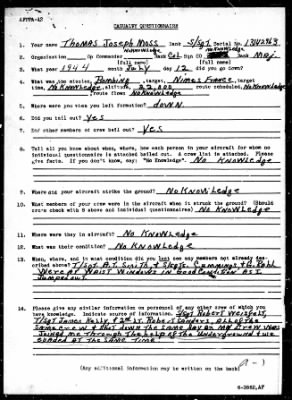 AFPPA-12
CASUALTY QUESTIONNAIRE
1. Your name Thomas Joseph Moss Rank S/Sgt Serial No.
2. Organization Gp Commander Rank Col Sqn CO Rank Maj.
(full name) (full name)
3. What year 1944 month July day 12 did you go down?
4. What was the mission, Bombing, target, Nimes France, target
time, No Knowledge, altitude, 22,000 route scheduled, No Knowledge
route flown No Knowledge
5. Where were you when you left formation? down.
6. Did you bail out? Yes
7. Did other members of crew bail out? Yes
8. Tell all you know about when, where, how each person in your aircraft for whom no
individual questionnaire is attached bailed out. A crew list is attached. Please
give facts. If you don't know, say: "No Knowledge". No Knowledge
9. Where did your aircraft strike the ground? No Knowledge
10. What members of your crew were in the aircraft when it struck the ground? (Should
cross check with 8 above and individual questionnaires) No Knowledge
11. Where were they in aircraft? No Knowledge
12. What was their condition? No Knowledge
13. When, where, and in what condition did you last see any members not already described
above? T/Sgt B.T. Smith & S/Sgts Cummings &
Were at Waist Windows in Good Condition as I
Jumped out.
14. Please give any similar information on personnel of any other crew of which you have
knowledge. Indicate source of information. S/Sgt Robert Weisfelt,
T/Sgt James Kelly, & 2nd Lt. Robert Sanders all of the
same crew & shot down the same day as my crew was
Joined me through the help of the Underground & we
at the same time
(Any additional information may be written on the back)
6-3862,AF